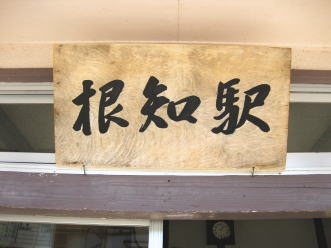 根知駅